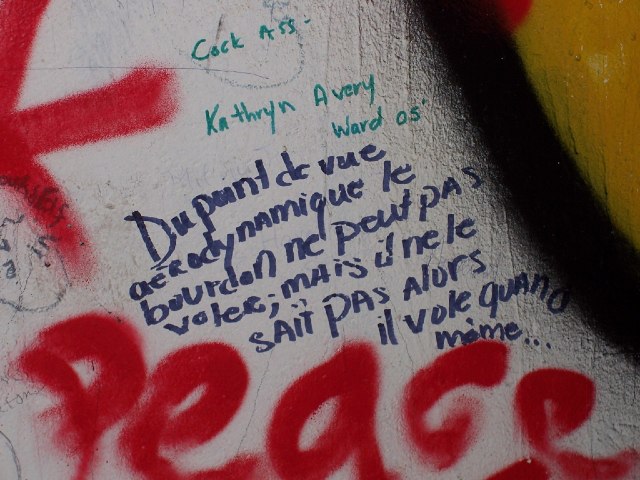 Cock Ass -
Kathryn Avery
Ward 05'
Du point de vue
aérodynamique le
bourdon ne peut pas
voler; mais il ne le
sait pas alors
il vole quand
même...
Peace